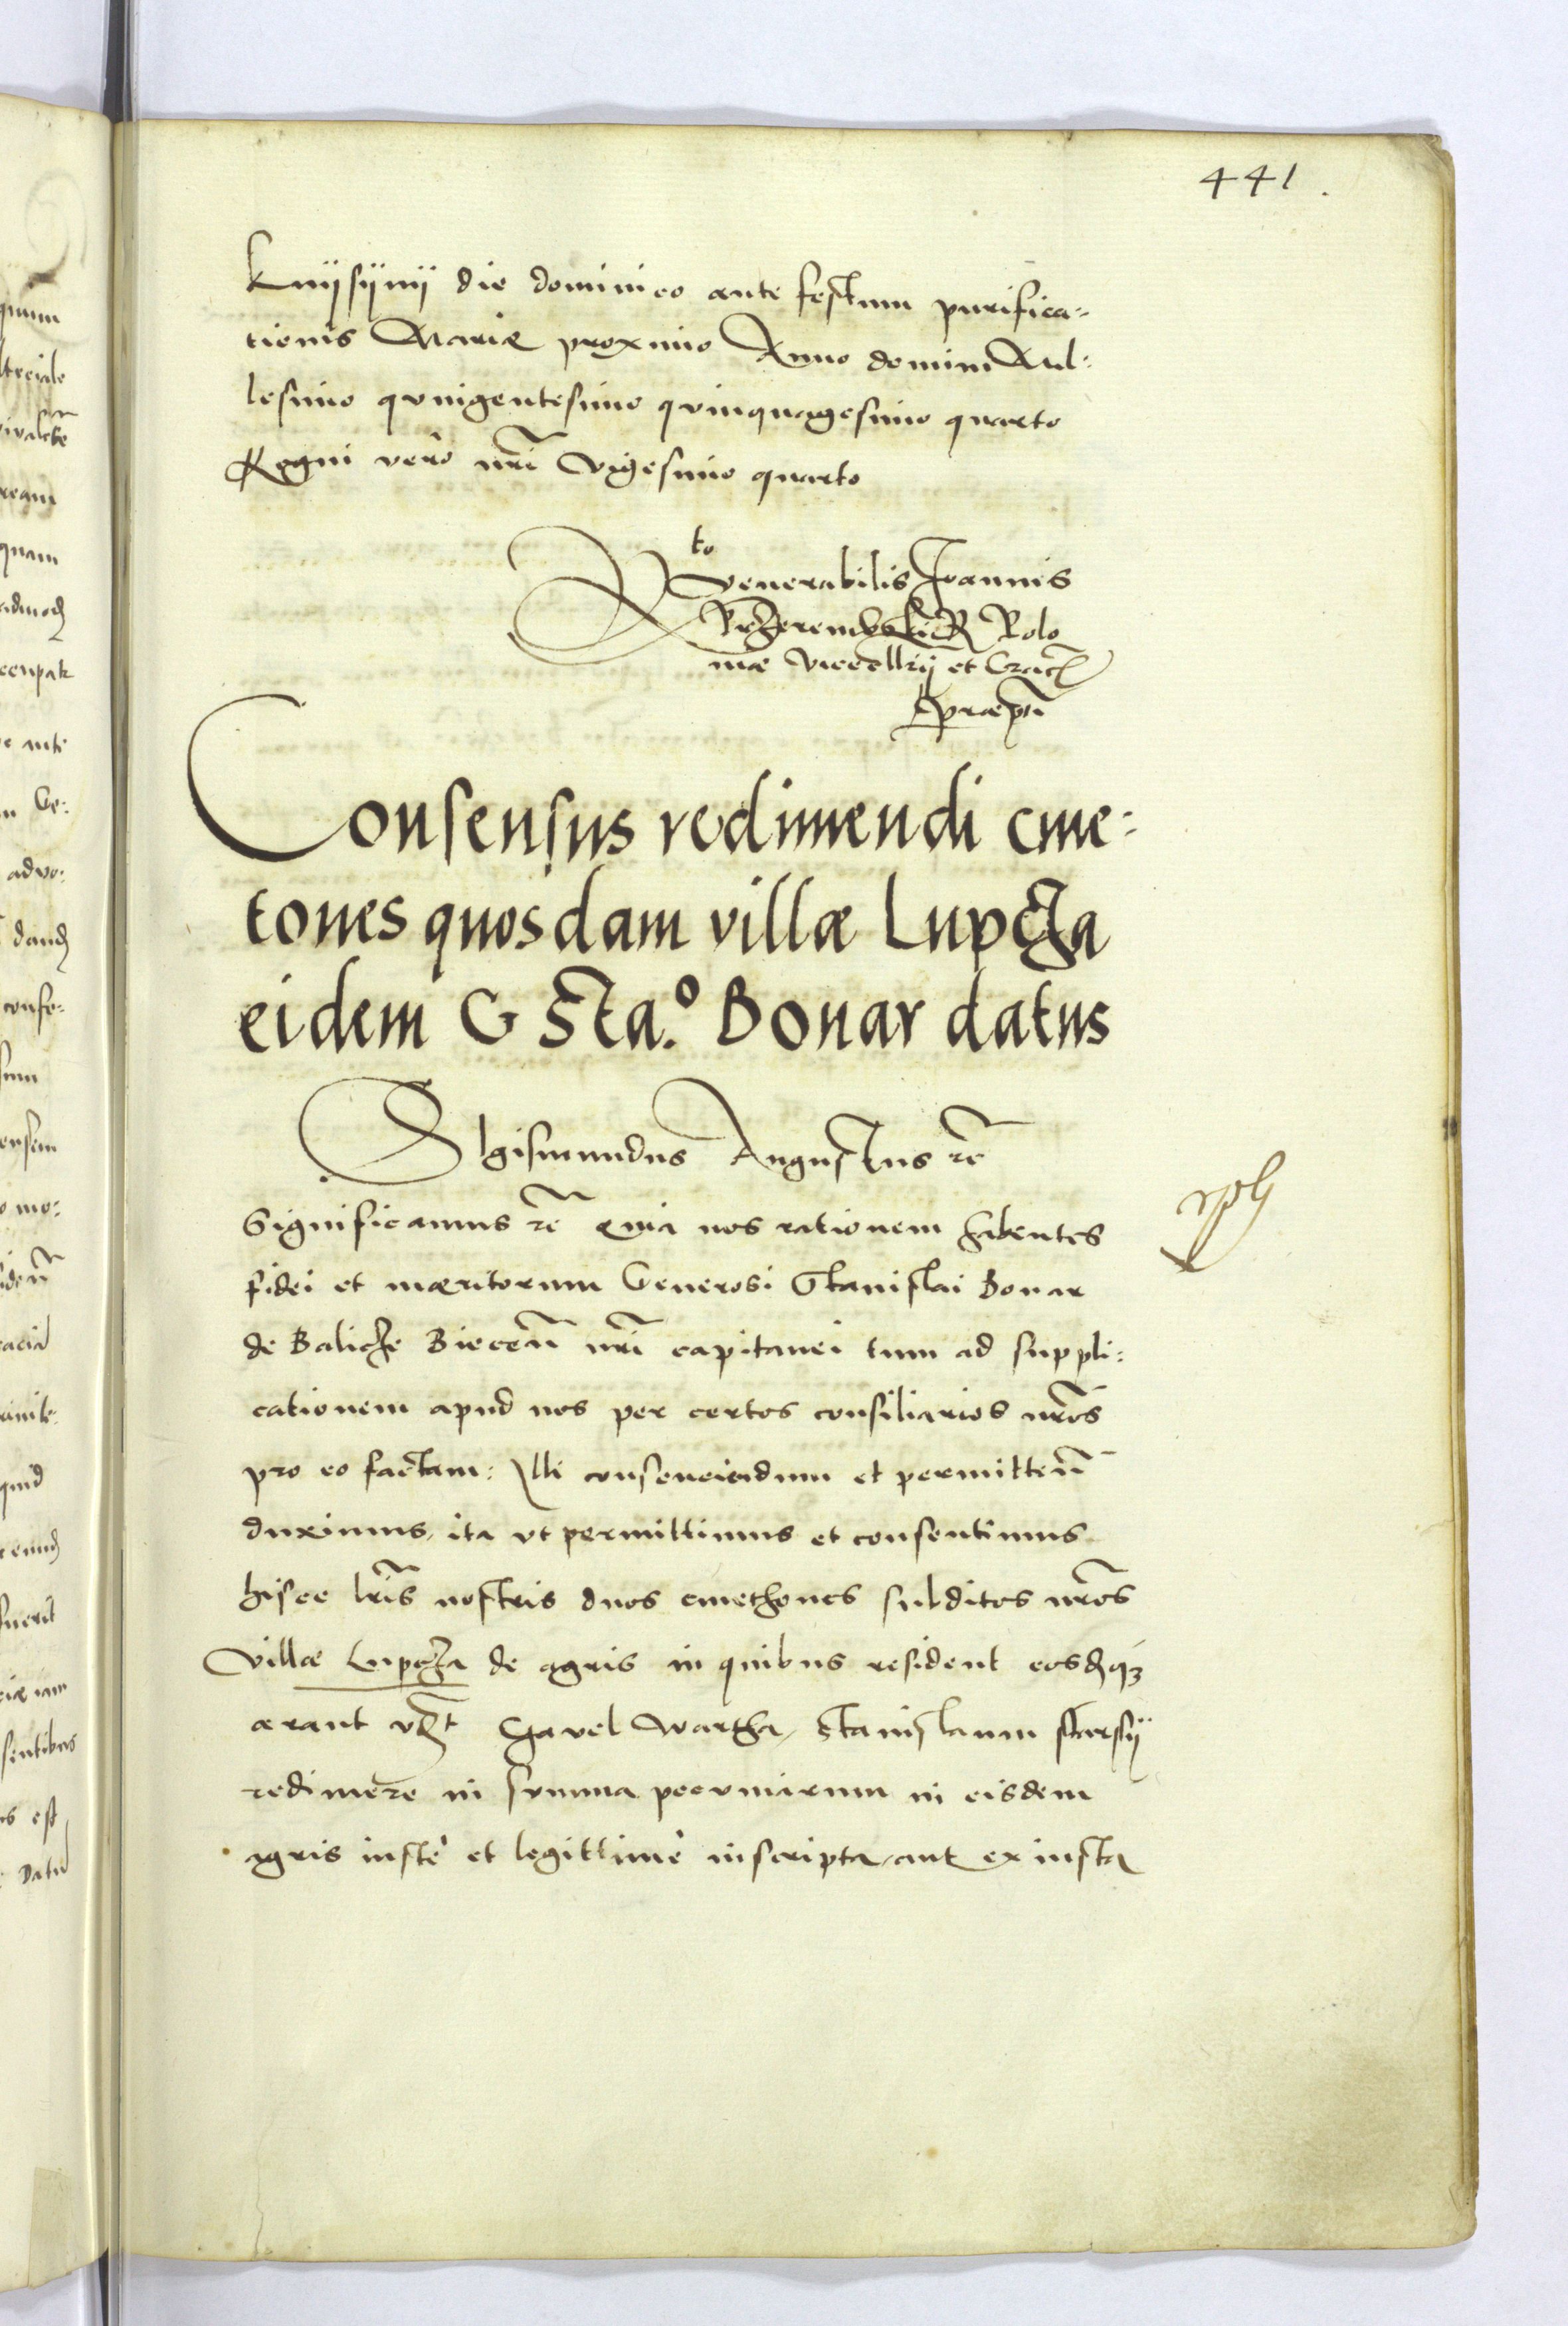 441.
Knÿsÿnÿ die dominico ante festum purifica-
tionis Mariæ proximo Anno domini Mil-
lesimo qvingentesimo qvinquagesimo quarto
Regni vero nrĩ Vigesimo quarto
Rto venerabilis Joannis
Przerembski R Polo
niæ vicecllrij et Crac
præpti
Consensus redimendi cme-
tones quosdam villæ Lupcza
eidem G Sta.º Bonar datus
Sigismundus Augustus rc̃
Significamus rc̃ Quia nos rationem habentes
fidei et mæritorum Generosi Stanislai Bonar
de Balicze Biecen̄ nrĩ capitanei tum ad suppli-
cationem apud nos per certos consiliarios nros̃
pro eo factam: Illi consenciendum et permitten̄
duximus, ita vt permittimus et consentimus
hisce lris̃ nostris duos cmethones subditos nros̃
Villæ Lupcza de agris in quibus resident eosdq3
arant vdt Gavel Wartha, Stanislaum starsÿ
redimere in summa pecuniarum in eisdem
agris iustè et legittimè inscripta, aut ex iusta